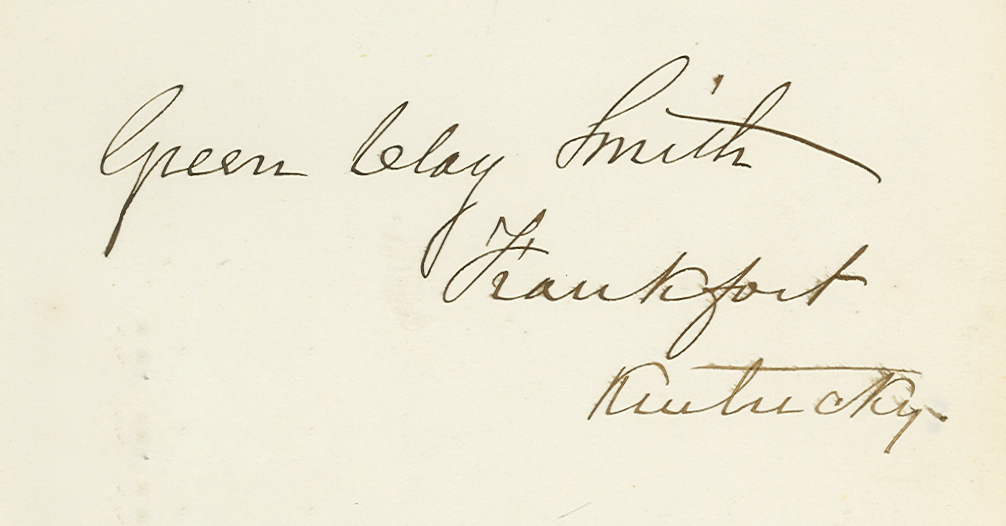 Green Clay Smith
Frankfort
Kentucky.